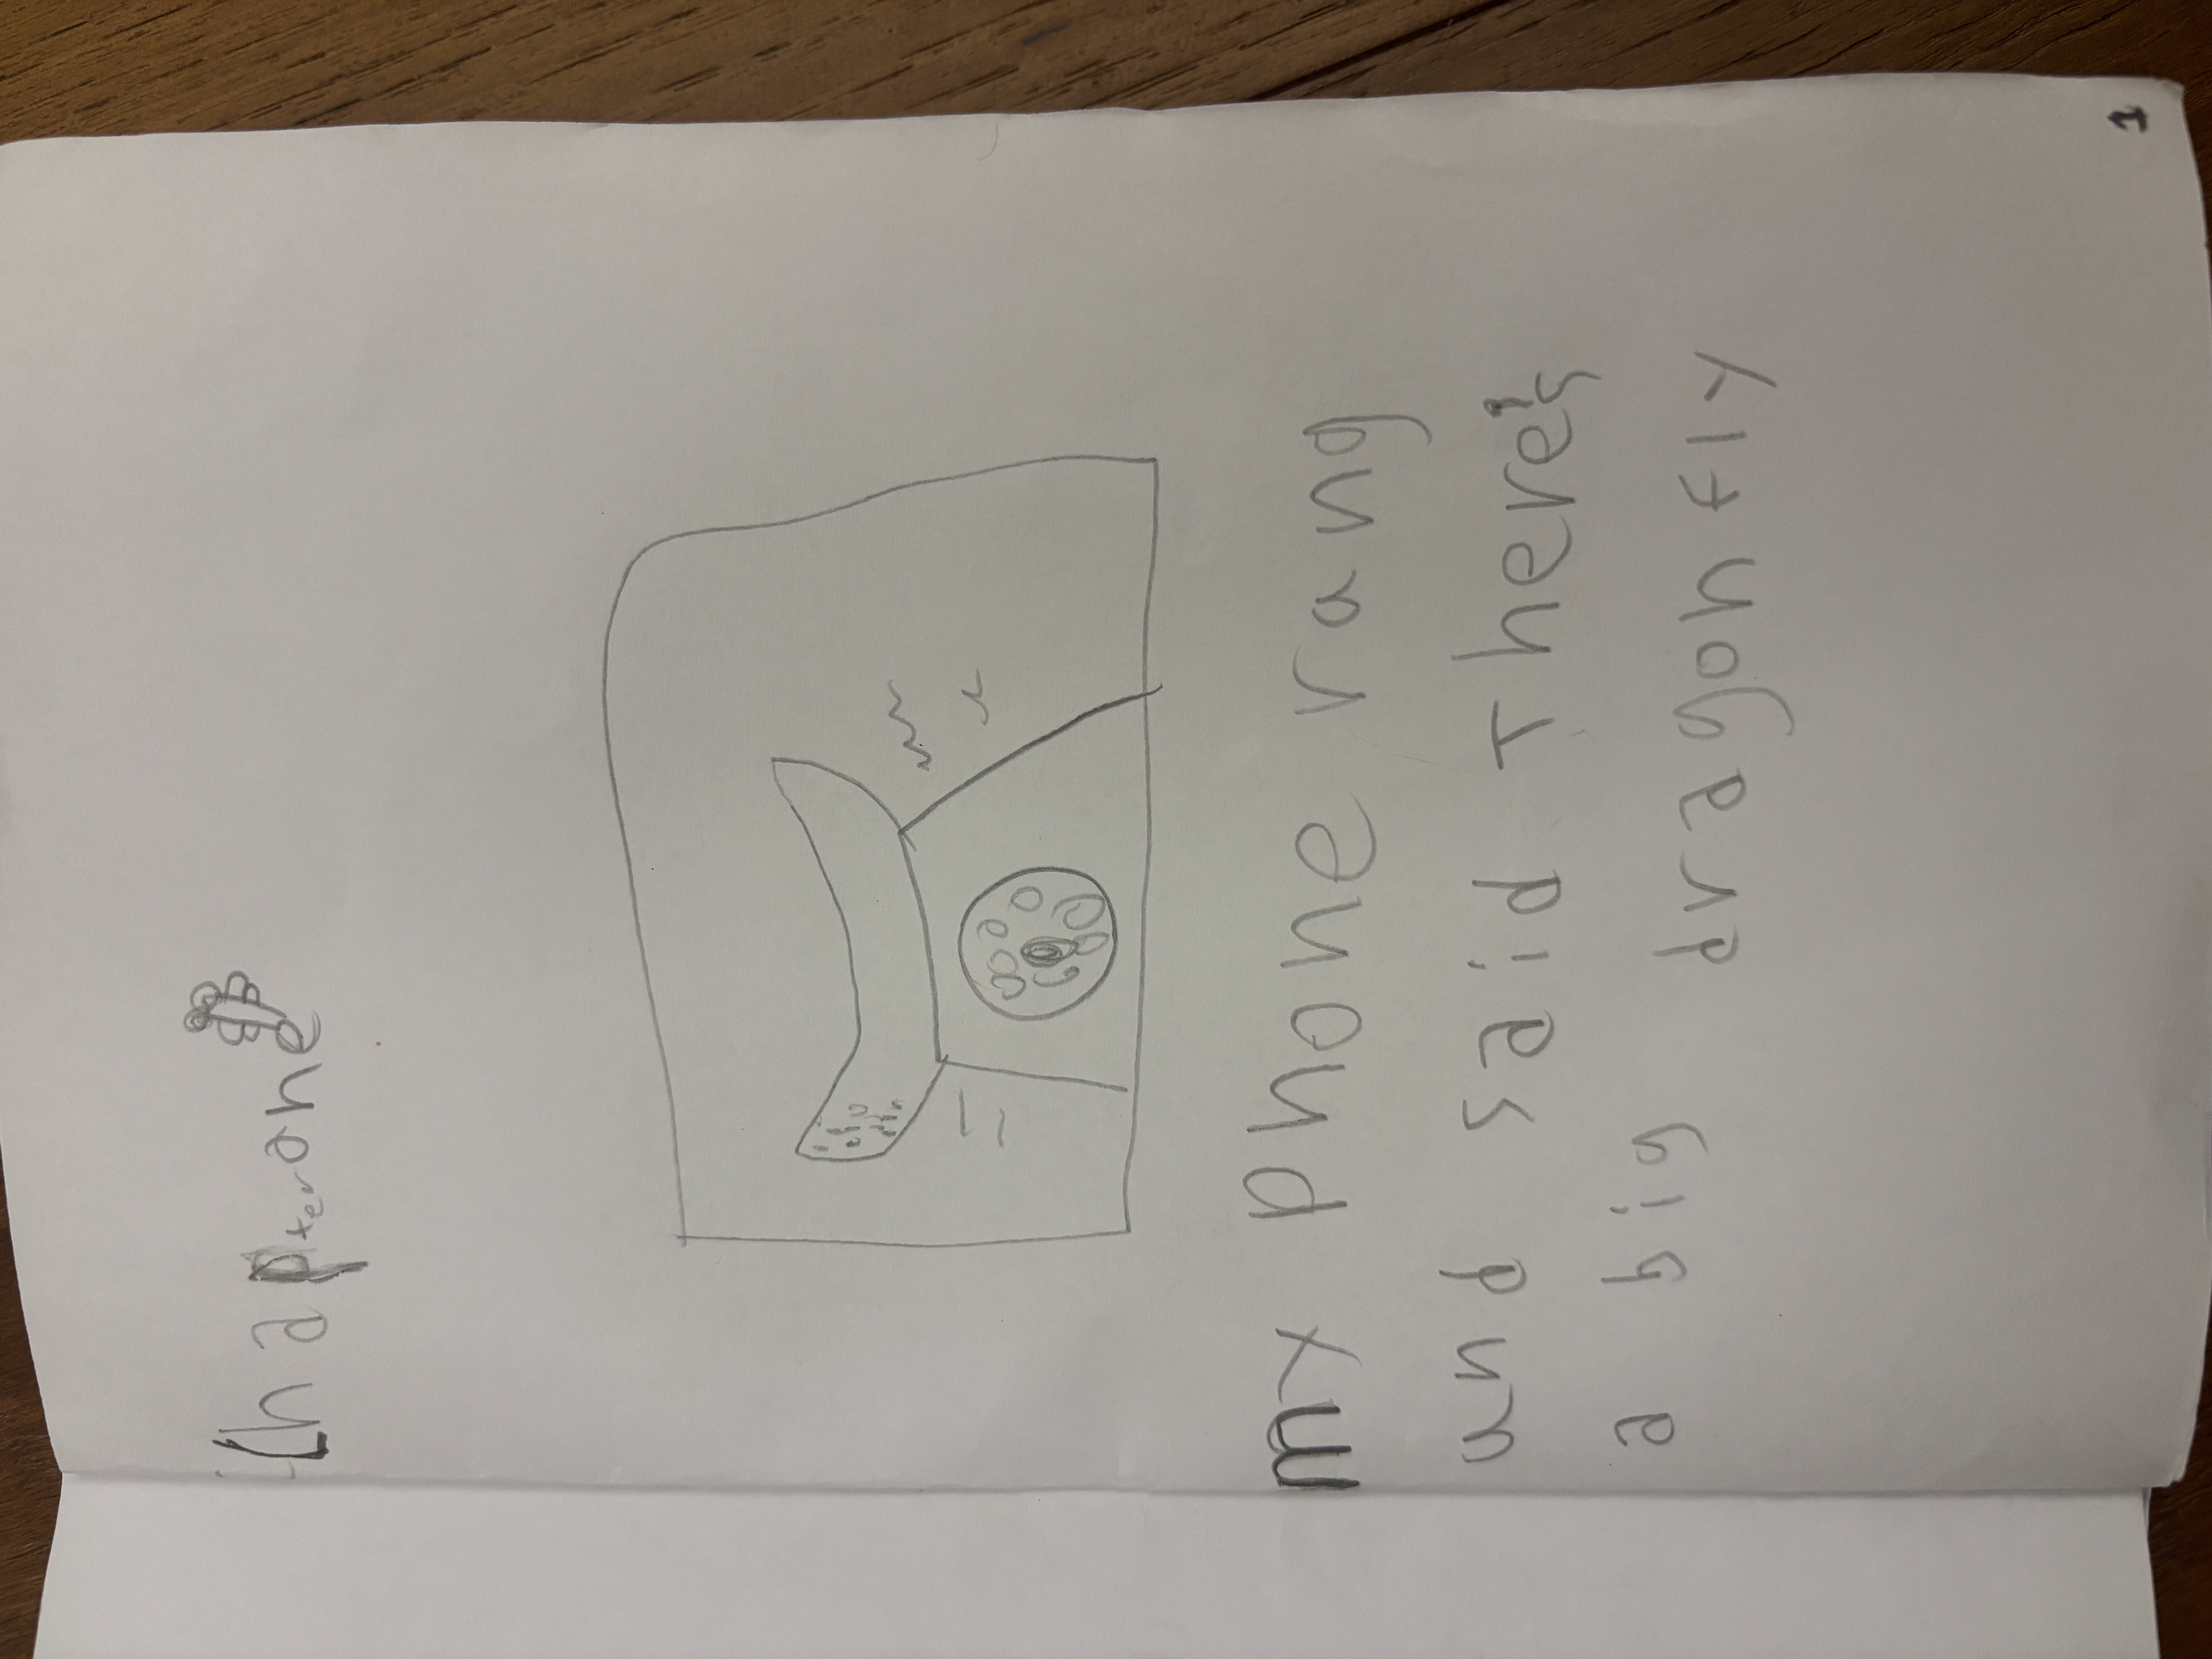 Chapter one
my phone rang
and said There's
a big dragon fly
1